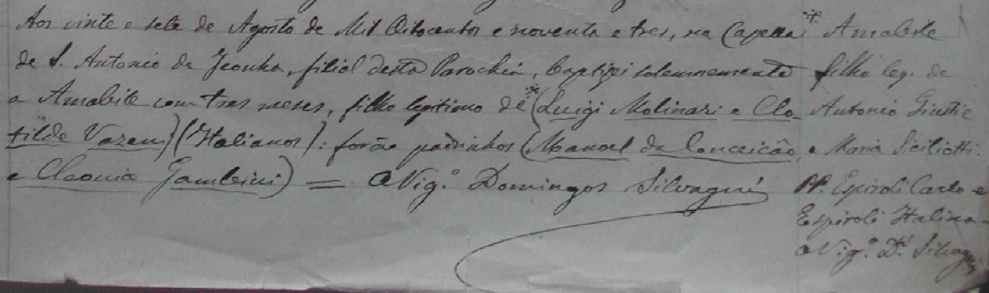 Aos vinte e sete de Agosto de Mil Oitocentos e noventa e tres, na Capella
de S. Antonio da Jconha, filial desta Parochia, baptizei solemnemente
a Amabile com tres meses, filho legitimo de * (Luigi Molinari e Clo-
tilde Vazem) (Italianos): forão padrinhos (Manoel da Conceição
e Cleonia Gambeini) = O Vig.º Domingos Silvagni
* Amabile
filho leg. de
Antonio Giustie
e Maria Siciliotti.
PP. Espiroli Carlo e
Espiroli Italina -
O Vig.º D. Silvagni